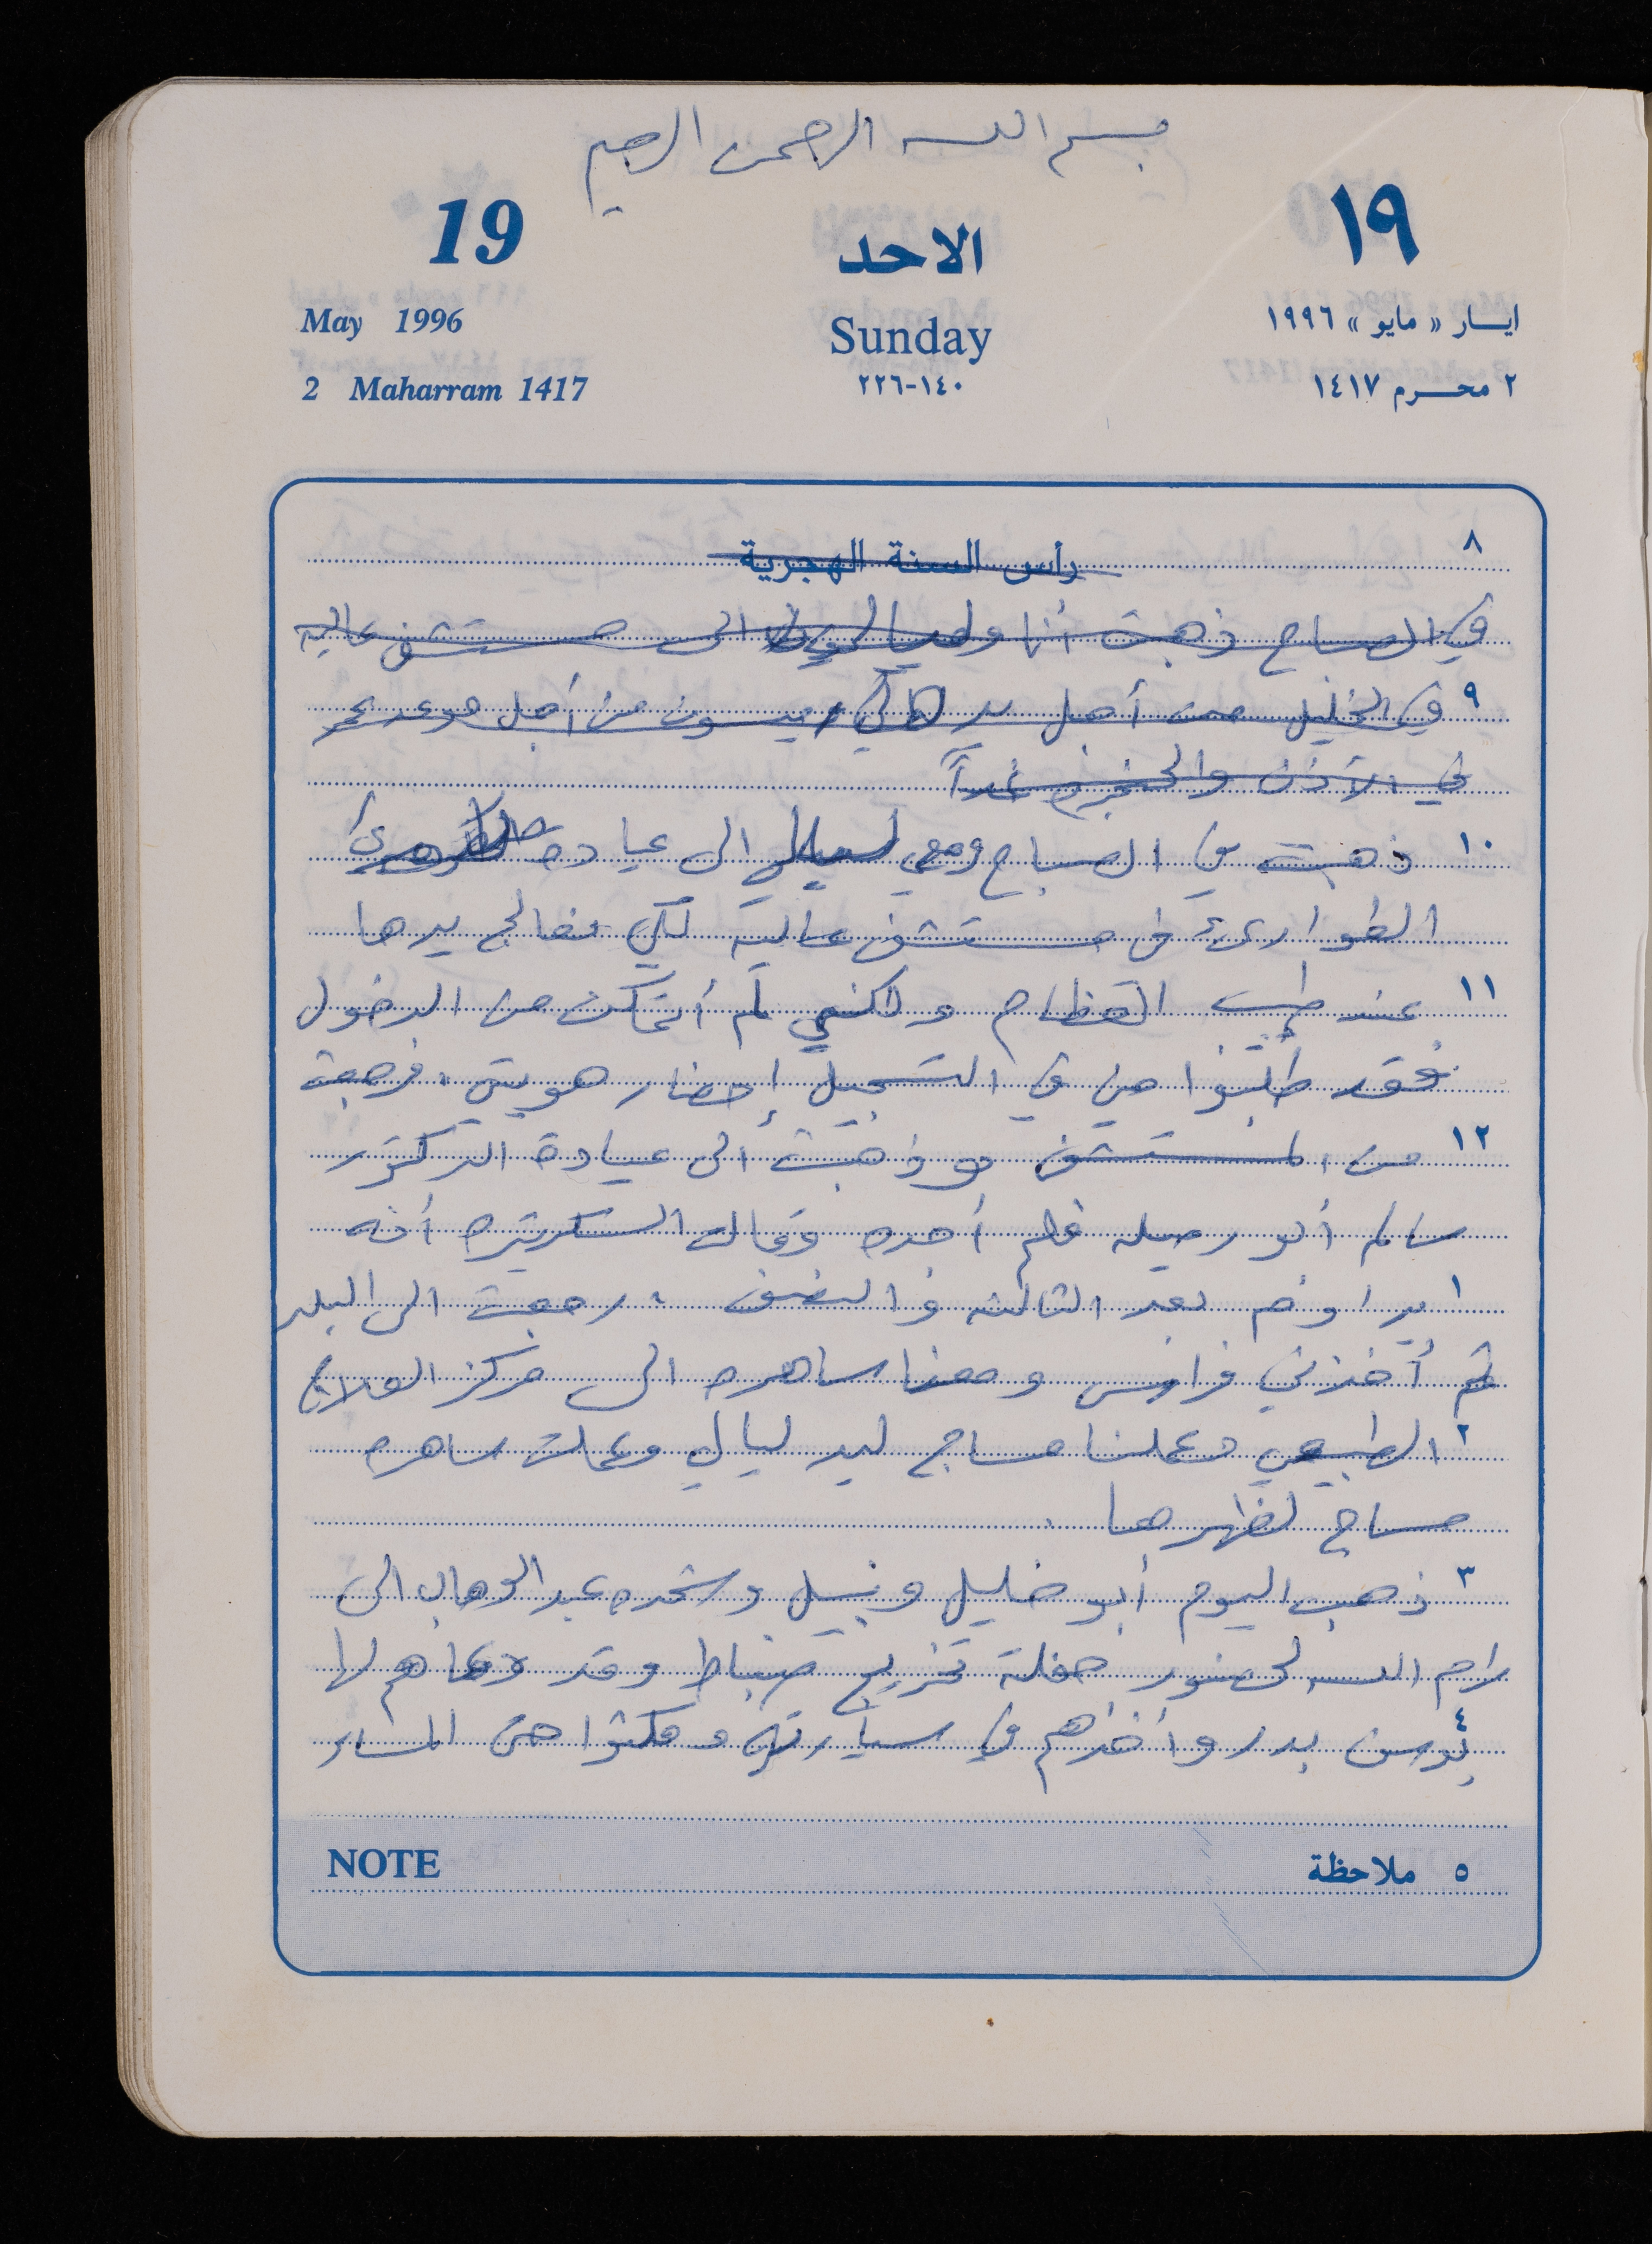 بسم الله الرحمن الرحيم
19 الاحد ١٩
May 1996 Sunday ايـار «مايو» ١٩٩٦
2 Maharram 1417 ١٤٠-٢٢٦ ٢ محـرم ١٤١٧
٨
رأس السنة الهجرية
في الصباح ذهبت أنا الى مستشفى عاليه
٩ في الخليل من أجل من أجل موعد
في الأذن والحنجرة غداً
١٠ ذهبت في الصباح ومعي ليالي الى عيادة
الطوارئ في مستشفى عاليه لكي نعالج يدها
١١ عند طبيب العظام ولكني لم أتمكن من الدخول
فقد طلبوا مني في التسجيل إحضار هويتي، فرجعت
١٢ من المستشفى وذهبت الى عيادة الدكتور
سالم أبو رميله فلم أجده وقالت السكرتيره أنه
١ يداوم بعد الثالثه والنصف، رجعت الى البلد
ثم أخذني فراس ومعنا ساهره الى مركز العلاج
٢ الطبيعي وعملنا مساج ليد ليالي وعملت ساهره
مساج لظهرها.
٣ ذهب اليوم أبو خليل ونبيل وشحده عبد الوهاب الى
رام الله لحضور حفلة تخريج ضباط وقد دعاهم لها
٤ يوسف بدر وأخذهم في سيارته ومكثوا حتى المساء
NOTE ٥ ملاحظة